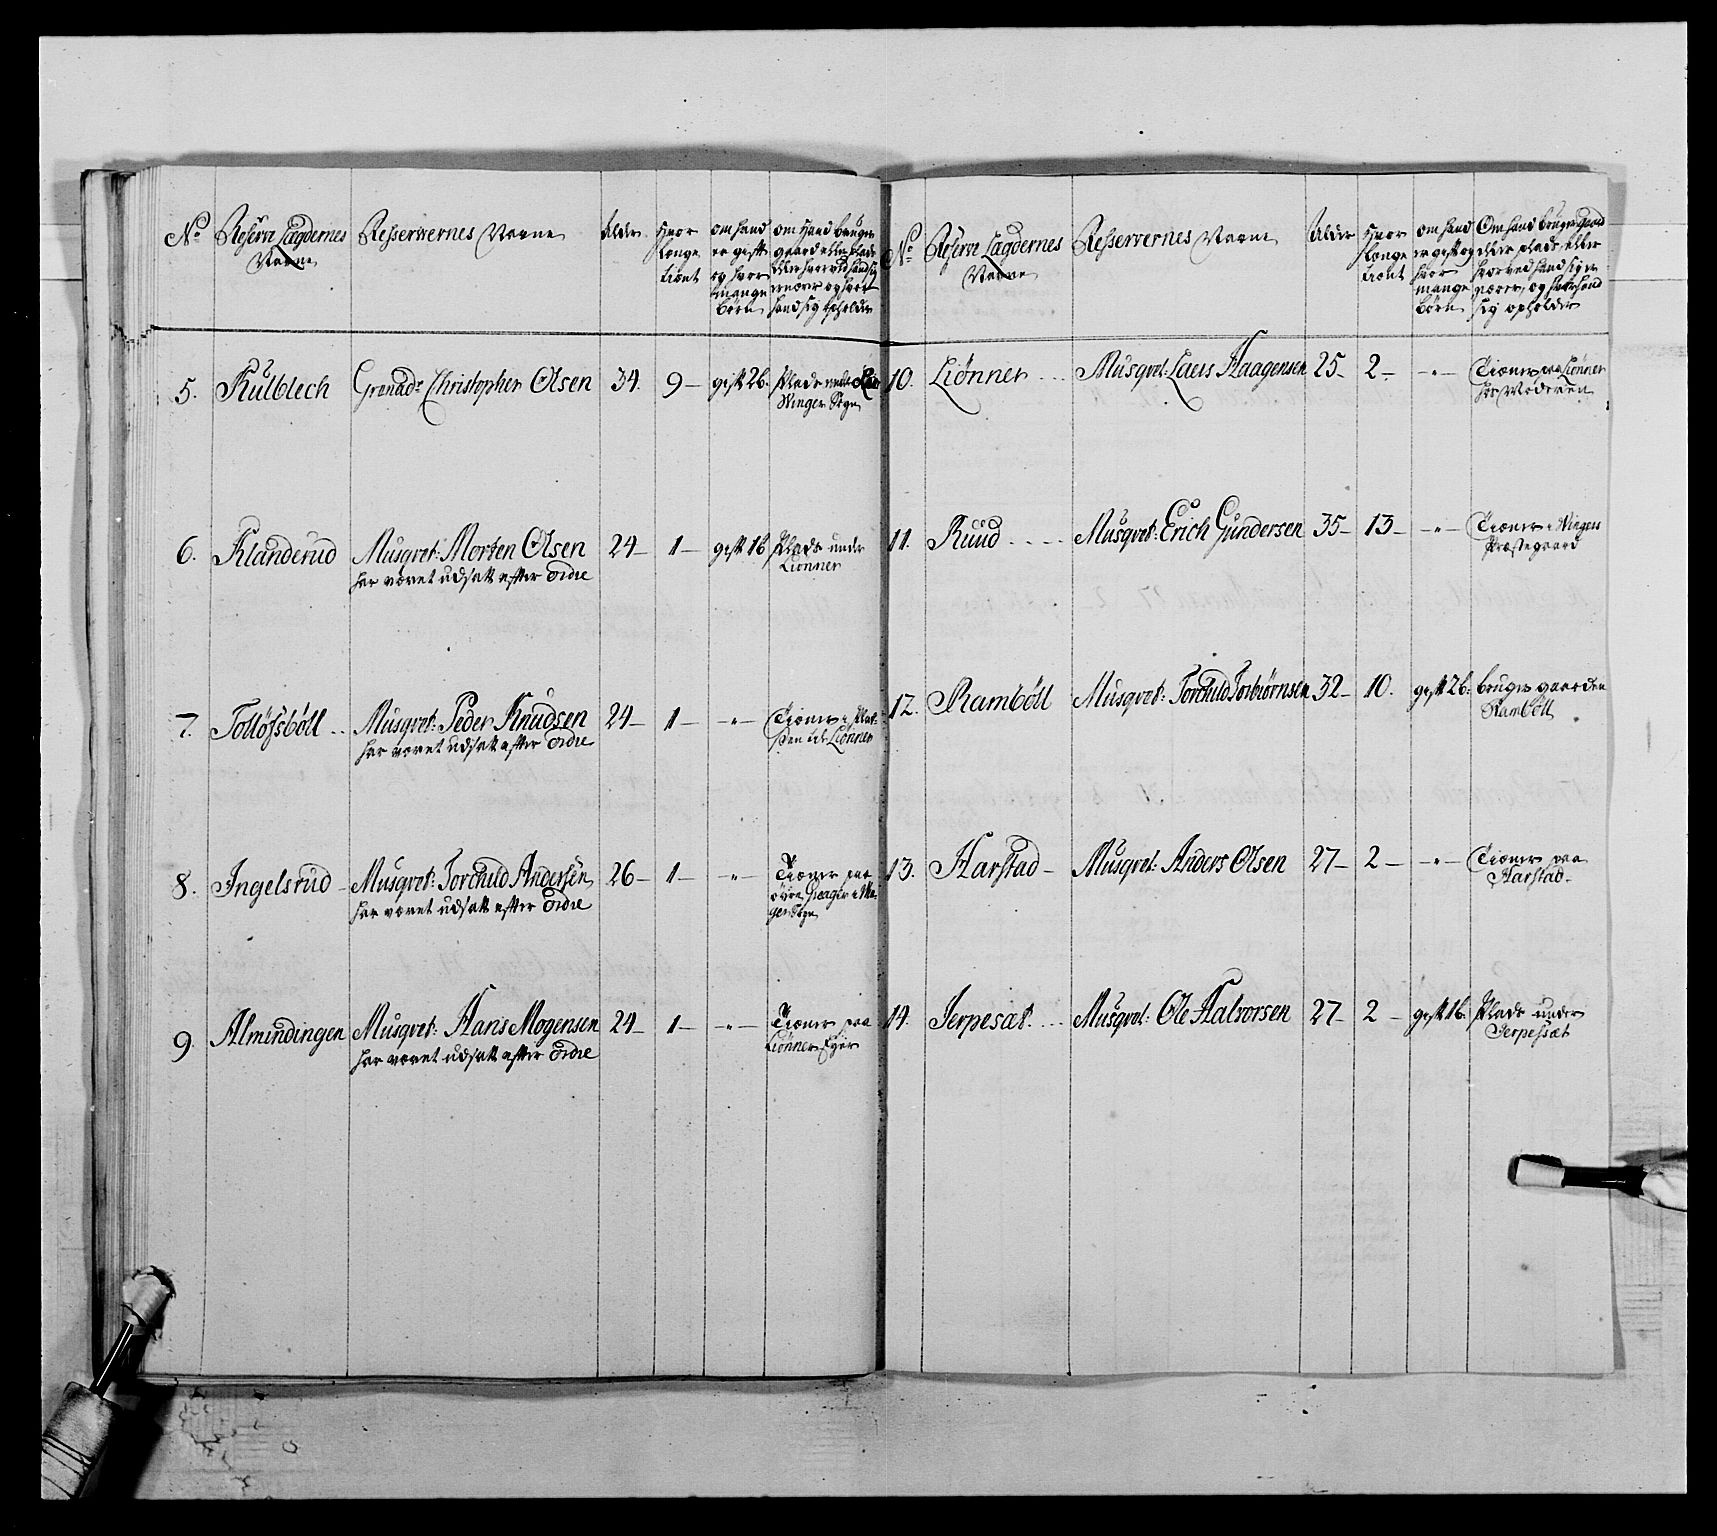 No
Reserve Lægdernes
Navne
Resserwernes Navne
Alder
Hvor
længe
tient
om hand
er gift
og hvor
mange
børn
om Hand bruger
gaard eller plads
eller hvorved hand sig
ernærer og hvor
hand sig opholder
5. Kulblech Grenad: Christopher Olsen 34. 9– gift 2b. Plads under
Winger Sogn
6. Klanderud Musqvet: Morten Olsen 24– 1– gift 1b Plads under
har været udsatt efter Ordre Liønner
7. Tollöfsböll .. Musqvet: Peder Knudsen 24– 1– –"– Tiener i Plad-
har været udsatt efter Ordre sen Liønner
8. Ingelsrud – Musqvet: Torchild Andersen 26– 1– –"– Tiener paa
har været udsatt efter Ordre øvre i Win-
ger Sogn
9. Almindingen Musqvet: Hans Mogensen 24– 1– –"– Tiener paa
har været udsatt efter Ordre Liønner Eyer
No
Reserve Lægdernes
Navne
Resserwernes Navne
Alder
Hvor
længe
tient
om hand
er gift og
hvor
mange
Børn
Om hand bruger Gaard
eller plads eller
hvorved hand sig er-
nærer, og hvor hand
sig opholder
10. Liønner ... Musqvet: Laers Haagensen 25– 2– –"– Tiener paa Liønner
hos Moderen
11. Ruud ..... Musqvet: Erich Gundersen 35– 13– –"– Tiener i Wingers
Præstegaard
12. Ramböll Musqvet: Torchild Torbiørnsen 32– 10. gift 2b. bruger gaarden
Ramböll
13. Harstad – Musqvet: Anders Olsen 27– 2– –"– Tiener paa
Harstad –
14. Jerpesæt .... Musqvet: Ole Halvorsen 27– 2– gift 1b. Plads under
Jerpessæt